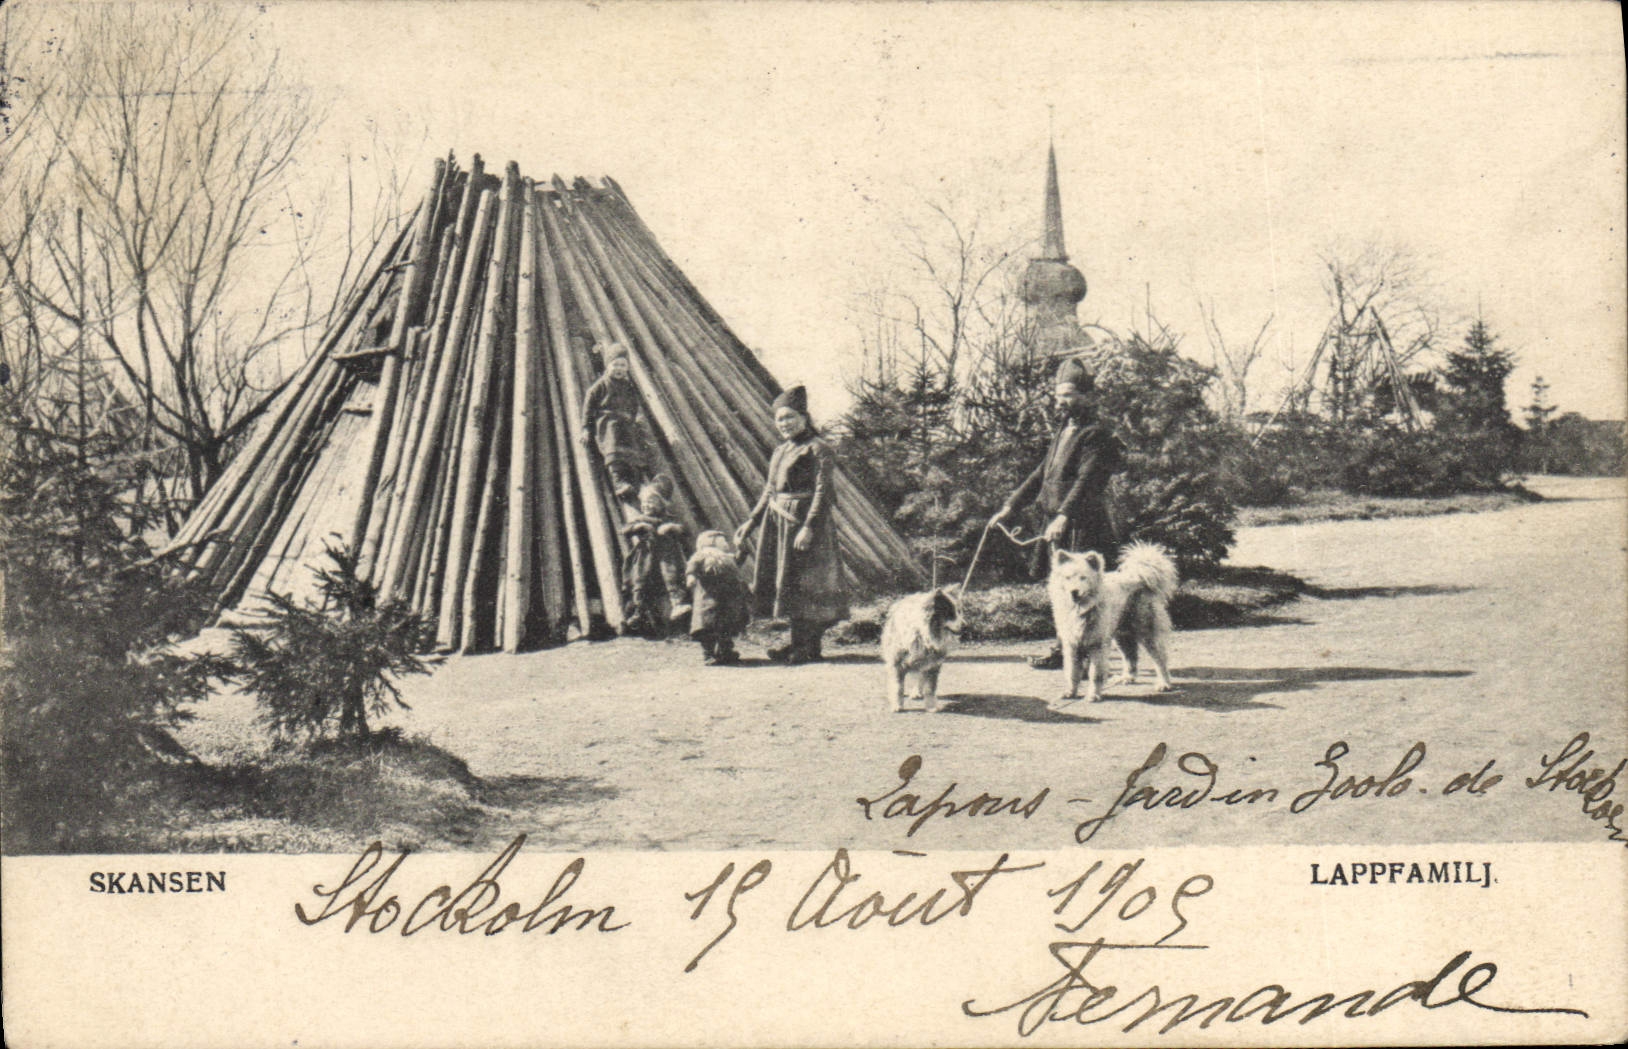 Lapons - Jardin Zoolo. de Stockholm
SKANSEN
LAPPFAMILJ.
Stockholm 15 Août 1905
Fernande